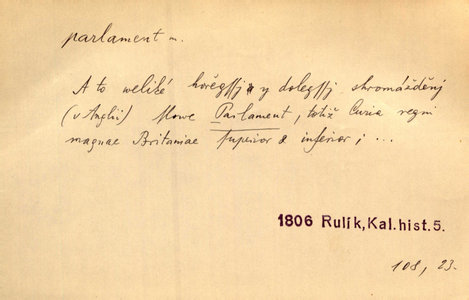 parlament m.
A to weliké hořegssj a y dolegssj shromážděnj
(v Anglii) slowe Parlament, totiž Curia regni
magnae Britaniae superior & inferior; ...
1806 Rulík, Kal. hist. 5.
108, 23.